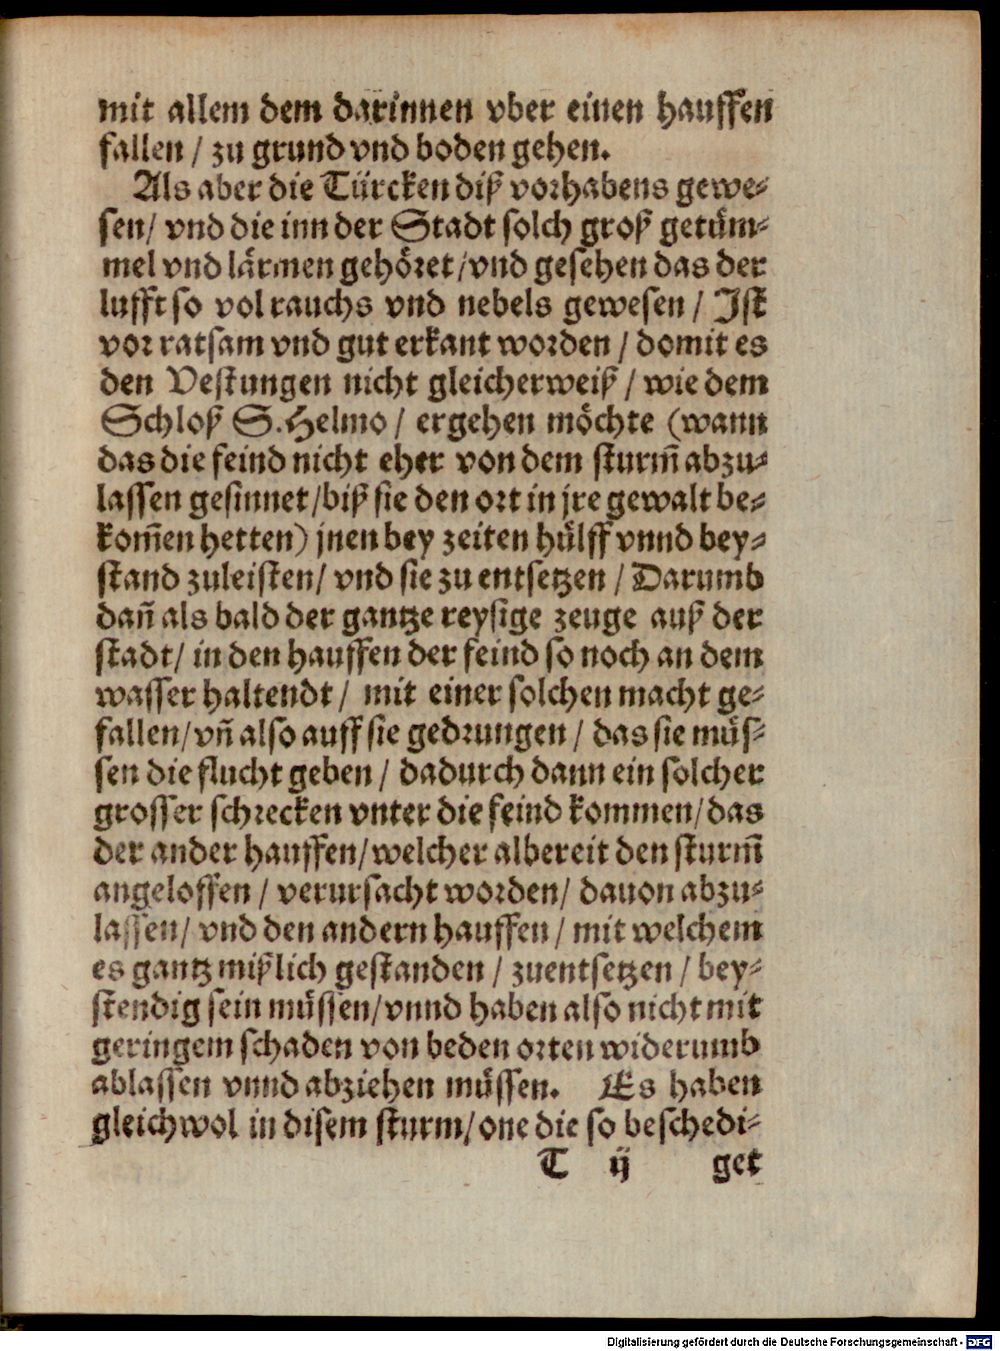 mit allem dem darinnen vber einen hauffen
fallen / zu grund vnd boden gehen.
Als aber die Türcken diß vorhabens gewe⸗
sen / vnd die inn der Stadt solch groß getüm⸗
mel vnd lärmen gehöret / vnd gesehen das der
lufft so vol rauchs vnd nebels gewesen / Ist
vor ratsam vnd gut erkant worden / domit es
den Vestungen nicht gleicherweiß / wie dem
Schloß S. Helmo / ergehen möchte (wann
das die feind nicht eher von dem sturm̃ abzu⸗
lassen gesinnet / biß sie den ort in jre gewalt be⸗
kom̃en hetten) jnen bey zeiten hülff vnnd bey⸗
stand zuleisten / vnd sie zu entsetzen / Darumb
dañ als bald der gantze reysige zeuge auß der
stadt / in den hauffen der feind so noch an dem
wasser haltendt / mit einer solchen macht ge⸗
fallen / vñ also auff sie gedrungen / das sie müs⸗
sen die flucht geben / dadurch dann ein solcher
grosser schrecken vnter die feind kommen / das
der ander hauffen / welcher albereit den sturm̃
angeloffen / verursacht worden / dauon abzu⸗
lassen / vnd den andern hauffen / mit welchem
es gantz mißlich gestanden / zuentsetzen / bey⸗
stendig sein müssen / vnnd haben also nicht mit
geringem schaden von beden orten widerumb
ablassen vnnd abziehen müssen. Es haben
gleichwol in disem sturm / one die so beschedi⸗
T ij get
Digitalisierung gefördert durch die Deutsche Forschungsgemeinschaft - DFG